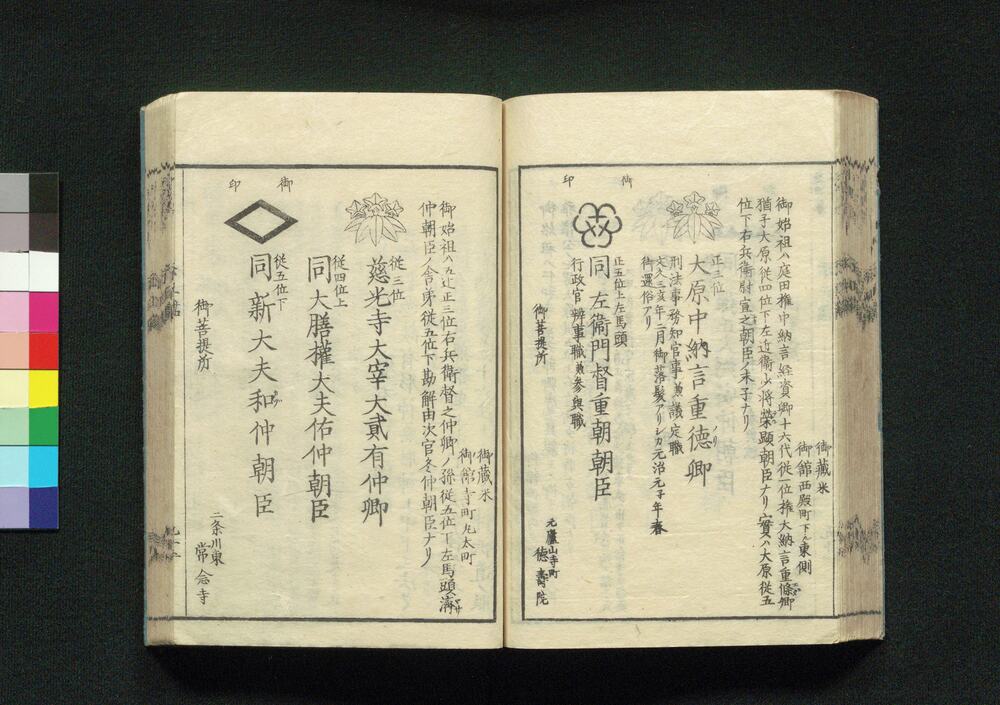 御蔵米
御館西殿町下ル東側
御始祖ハ庭田権中納言経資卿十六代従一位権大納言重條卿
猶子大原従四位下左近衞少将栄顕朝臣ナリ實ハ大原従五
位下右兵衞尉宣之朝臣ノ末子ナリ
御印
正三位
大原中納言重徳卿
刑法事務知官事兼議定職
文久三亥年二月御落髪アリシカ元治元子年春
御還俗アリ
正五位上左馬頭
同左衞門督重朝朝臣
行政官辨事職兼参與職
御菩提所
元廬山寺町
徳壽院
御蔵米
御館寺町丸太町
御始祖ハ五辻正三位右兵衞督之仲卿ノ孫従五位下左馬頭濟
仲朝臣ノ舎弟従五位下勘解由次官冬仲朝臣ナリ
御印
従三位
慈光寺大宰大貳有仲卿
従四位上
同大膳權大夫佑仲朝臣
従五位下
同新大夫和仲朝臣
御菩提所
二条川東
常念寺